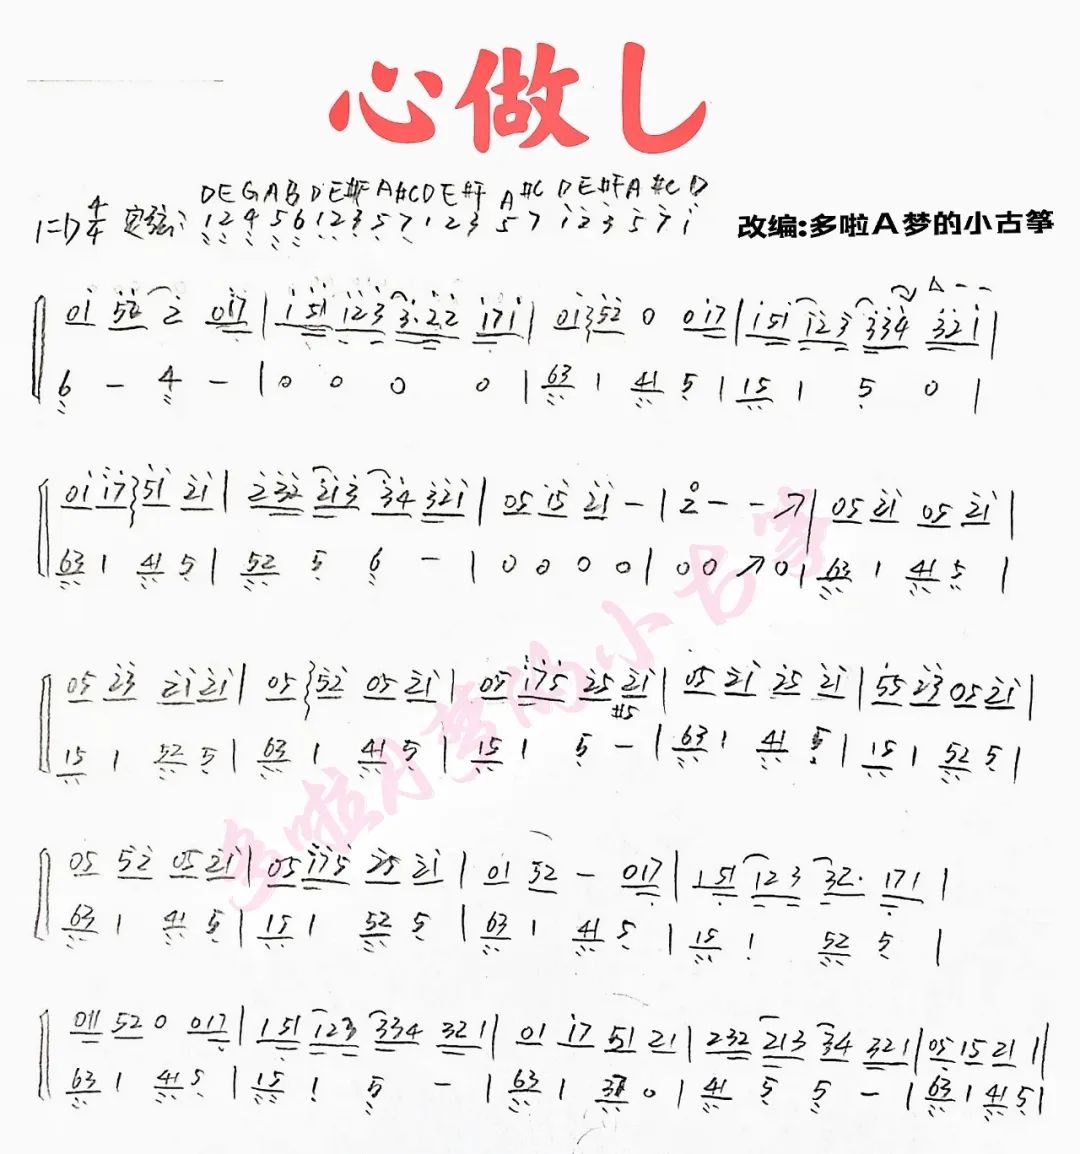 心做し
DEGAB DE#F A#CDE#F A#C DE#FA #C D
1=D 4/4 定弦: 1 2 4 5 6 1 2 3 5 7 1 2 3 5 7 1 2 3 5 7 1
改编:多啦A梦的小古筝
01 52 2 017 | 1 51 12 3 3·22 171 | 01 52 0 017 | 151 12 3 334 321 |
6 - 4 - | 0 0 0 0 | 63 1 41 5 | 15 1 5 0 |
01 17 51 21 | 232 213 34 321 | 05 15 21 - | 2 - - ↗ | 05 21 05 21 |
63 1 41 5 | 52 5 6 - | 0 0 0 0 | 0 0 ↗ 0 | 63 1 41 5 |
05 23 21 21 | 05 52 05 21 | 05 175 25 21 | 05 21 25 21 | 55 23 05 21 |
#5
15 1 52 5 | 63 1 41 5 | 15 1 5 - | 63 1 41 5 | 15 1 52 5 |
05 52 05 21 | 05 175 25 21 | 01 52 - 017 | 151 12 3 32· 171 |
63 1 41 5 | 15 1 52 5 | 63 1 41 5 | 15 1 52 5 |
011 52 0 017 | 151 123 334 321 | 01 17 51 21 | 232 213 34 321 | 05 15 21 |
63 1 41 5 | 15 1 5 - | 63 1 0 | 41 5 5 - | 63 1 41 5 |
多啦A梦的小古筝